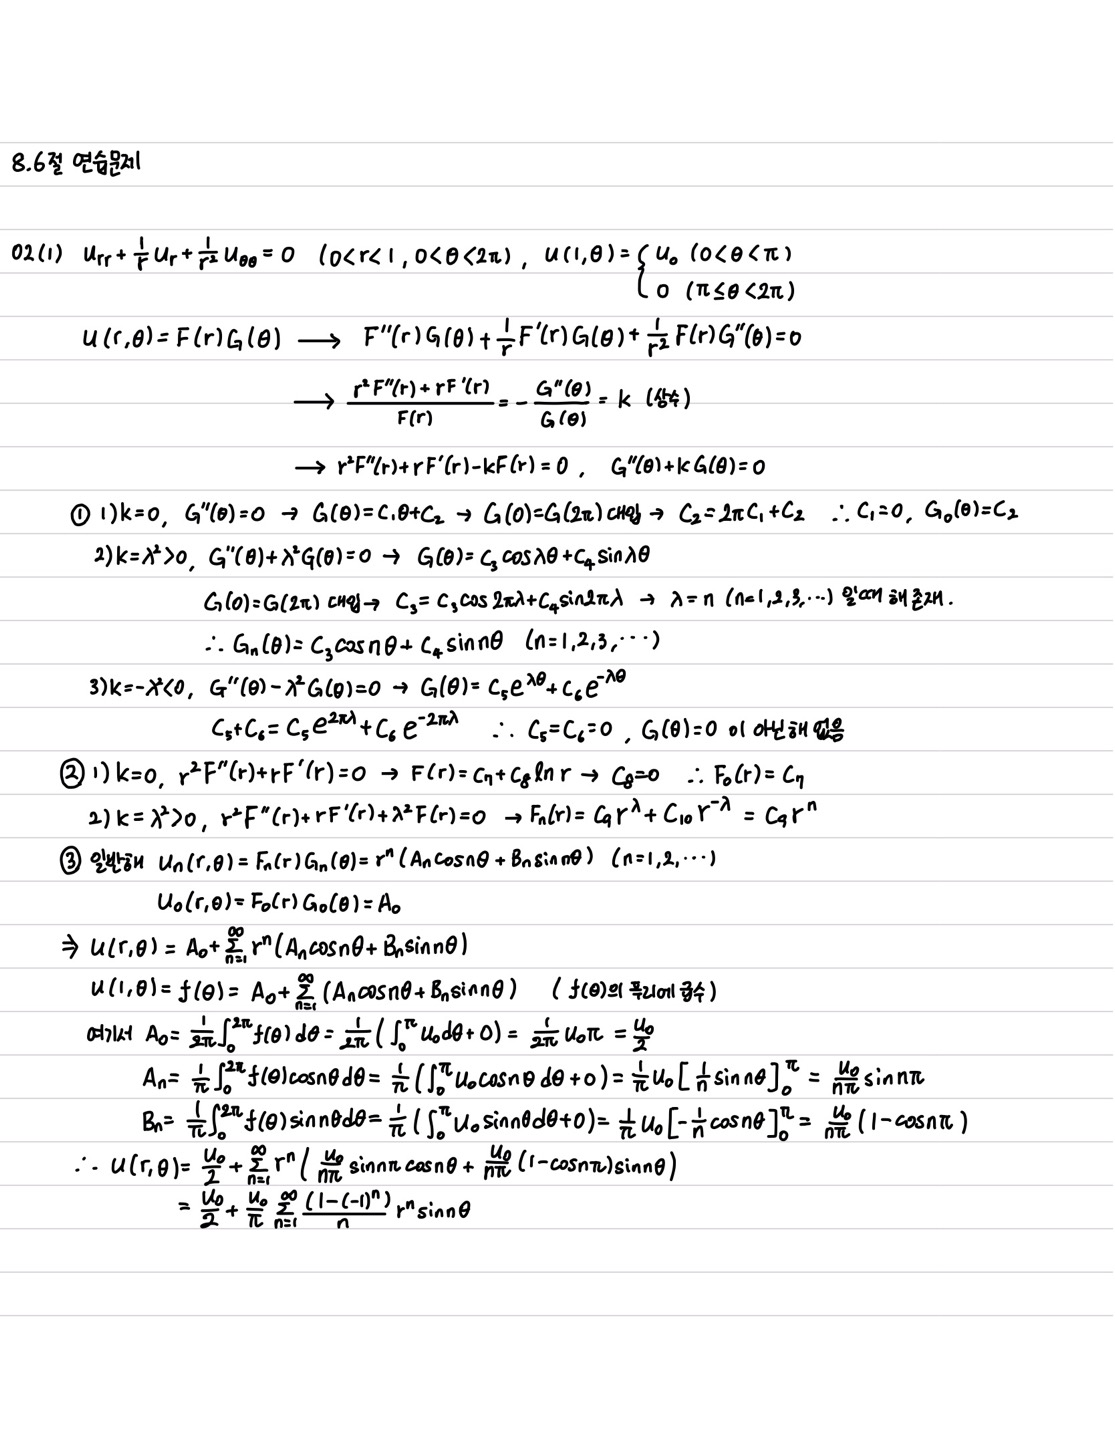 8.6절 연습문제
02(1) u_rr + 1/r u_r + 1/r² u_θθ = 0 (0<r<1, 0<θ<2π), u(1,θ) = { u₀ (0<θ<π)
0 (π≤θ<2π)
u(r,θ) = F(r)G(θ) ⟶ F''(r)G(θ) + 1/r F'(r)G(θ) + 1/r² F(r)G''(θ) = 0
⟶ (r²F''(r) + rF'(r))/F(r) = - G''(θ)/G(θ) = k (상수)
→ r²F''(r) + rF'(r) - kF(r) = 0, G''(θ) + kG(θ) = 0
① 1) k=0, G''(θ)=0 → G(θ) = C₁θ + C₂ → G(0)=G(2π) 대입 → C₂ = 2πC₁ + C₂ ∴ C₁=0, G₀(θ)=C₂
2) k=λ²>0, G''(θ) + λ²G(θ) = 0 → G(θ) = C₃cosλθ + C₄sinλθ
G(0)=G(2π) 대입 → C₃ = C₃cos2πλ + C₄sin2πλ → λ=n (n=1,2,3,⋯) 일때 해 존재.
∴ Gₙ(θ) = C₃cosnθ + C₄sinnθ (n=1,2,3,⋯)
3) k=-λ²<0, G''(θ) - λ²G(θ) = 0 → G(θ) = C₅e^{λθ} + C₆e^{-λθ}
C₅+C₆ = C₅e^{2πλ} + C₆e^{-2πλ} ∴ C₅=C₆=0, G(θ)=0 이 아닌 해 없음
② 1) k=0, r²F''(r) + rF'(r) = 0 → F(r) = C₇ + C₈ ln r → C₈=0 ∴ F₀(r) = C₇
2) k=λ²>0, r²F''(r) + rF'(r) + λ²F(r) = 0 → Fₙ(r) = C₉r^λ + C₁₀r^{-λ} = C₉rⁿ
③ 일반해 uₙ(r,θ) = Fₙ(r)Gₙ(θ) = rⁿ(Aₙcosnθ + Bₙsinnθ) (n=1,2,⋯)
u₀(r,θ) = F₀(r)G₀(θ) = A₀
⇒ u(r,θ) = A₀ + Σ_{n=1}^{∞} rⁿ(Aₙcosnθ + Bₙsinnθ)
u(1,θ) = f(θ) = A₀ + Σ_{n=1}^{∞} (Aₙcosnθ + Bₙsinnθ) (f(θ)의 푸리에 급수)
여기서 A₀ = 1/2π ∫₀^{2π} f(θ)dθ = 1/2π (∫₀^π u₀dθ + 0) = 1/2π u₀π = u₀/2
Aₙ = 1/π ∫₀^{2π} f(θ)cosnθdθ = 1/π (∫₀^π u₀cosnθdθ + 0) = 1/π u₀ [1/n sinnθ]₀^π = u₀/nπ sinnπ
Bₙ = 1/π ∫₀^{2π} f(θ)sinnθdθ = 1/π (∫₀^π u₀sinnθdθ + 0) = 1/π u₀ [-1/n cosnθ]₀^π = u₀/nπ (1-cosnπ)
∴ u(r,θ) = u₀/2 + Σ_{n=1}^{∞} rⁿ(u₀/nπ sinnπ cosnθ + u₀/nπ (1-cosnπ)sinnθ)
= u₀/2 + u₀/π Σ_{n=1}^{∞} (1-(-1)ⁿ)/n rⁿsinnθ